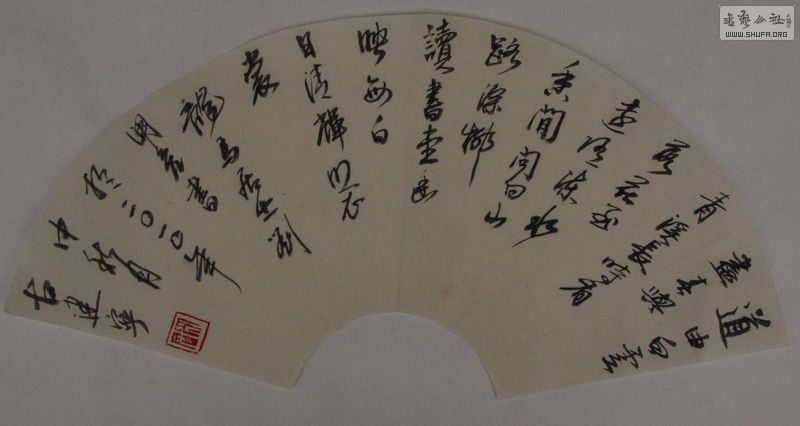 道由白雲
盡春與
青溪長時有
落花至
遠隨流水
香閒門向山
路深柳
讀書堂幽
映每白
日清輝照衣
裳
龍馬居士劉
書
於二〇一〇年
中秋月
古建寧
書藝公社
WWW.SHUFA.ORG